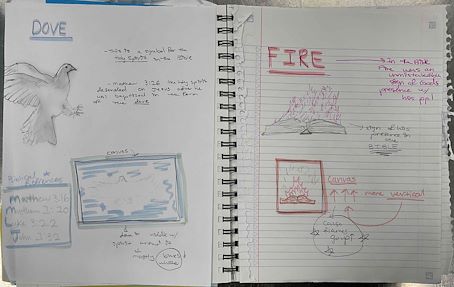 DOVE
- This is a symbol for the
Holy Spirit in the Bible
- Matthew 3:16 the holy spirit
descended on Jesus after he
was baptized in the form
of the dove
canvas
Biblical
References
Matthew 3:16
Luke 3:22
John 1:32
dove in middle w/
around it
mostly blues
white
FIRE
in the Bible
fire was an
unmistakable
sign of Gods
presence w/
his ppl
sign of his
presence in
BIBLE
Canvas
more vertical
cause
flames
go up!